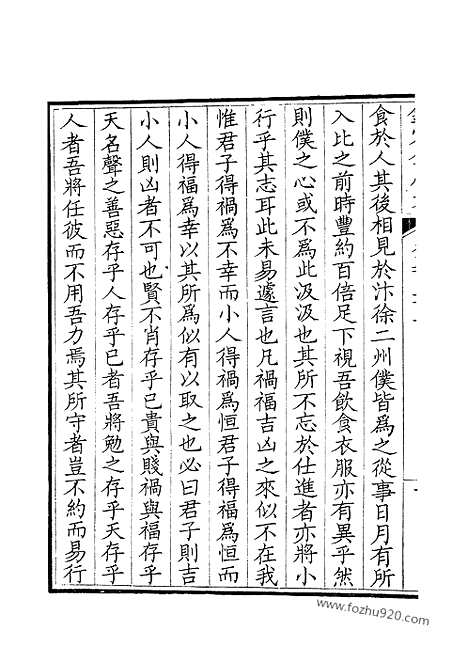 食於人其後相見於汴徐二州僕皆爲之從事日月有所
入比之前時豐約百倍足下視吾飲食衣服亦有異乎然
則僕之心或不爲此汲汲也其所不忘於仕進者亦將小
行乎其志耳此未易遽言也凡禍福吉凶之來似不在我
惟君子得禍爲不幸而小人得禍爲恒君子得福爲恒而
小人得福爲幸以其所爲似有以取之也必曰君子則吉
小人則凶者不可也賢不肖存乎己貴與賤禍與福存乎
天名聲之善惡存乎人存乎己者吾將勉之存乎天存乎
人者吾將任彼而不用吾力焉其所守者豈不約而易行
www.fozhu920.com